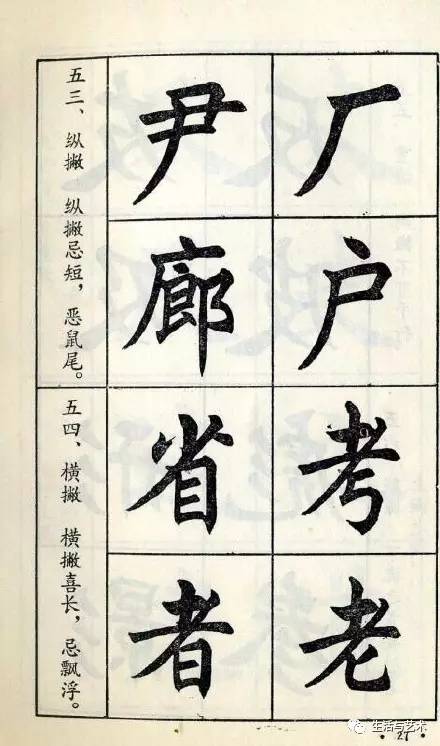 厂户
尹廊
五三、纵撇 纵撇忌短，恶鼠尾。
考老
省者
五四、横撇 横撇喜长，忌飘浮。
生活与艺术
· 27 ·